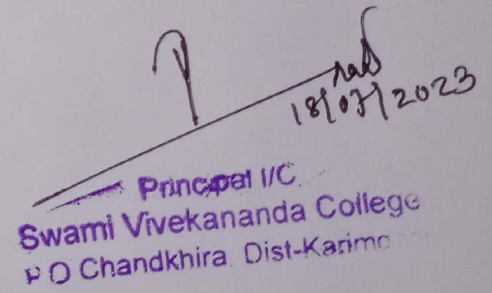 18/07/2023
Principal I/C
Swami Vivekananda College
P O Chandkhira Dist-Karimg